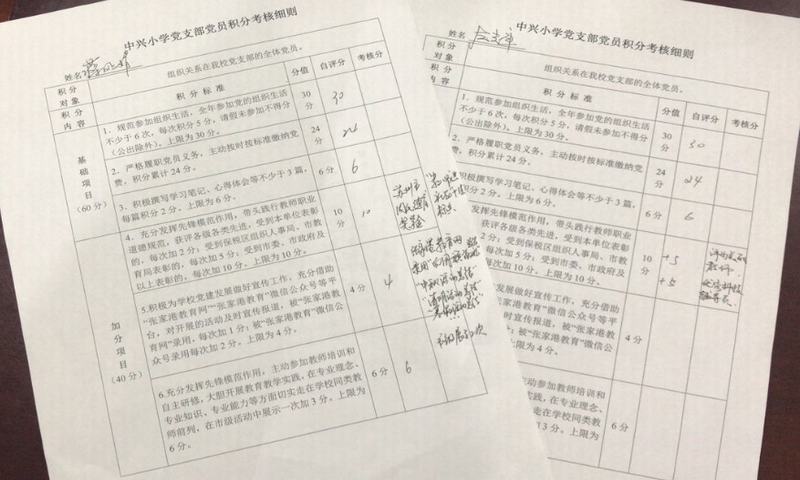 中兴小学党支部党员积分考核细则
姓名
积分
对象
组织关系在我校党支部的全体党员。
积分
内容
积 分 标 准
分值
自评分
考核分
基
础
项
目
（60分）
1．规范参加组织生活，全年参加党的组织生活
不少于6次，每次积分5分，请假未参加不得分
（公出除外）。上限为30分。
30
分
30
2．严格履职党员义务，主动按时按标准缴纳党
费，积分累计24分。
24
分
24
3．积极撰写学习笔记、心得体会等不少于3篇，
每篇积分2分。上限为6分。
6分
6
加
分
项
目
（40分）
4．充分发挥先锋模范作用，带头践行教师职业
道德规范，获评各级各类先进，受到本单位表彰
的，每次加2分；受到保税区组织人事局、市教
育局表彰的，每次加5分，受到市委、市政府及
以上表彰的，每次加10分。上限为10分。
10
分
10
5.积极为学校党建发展做好宣传工作，充分借助
“张家港教育网”“张家港教育”微信公众号等平
台，对开展的活动及时宣传报道，被“张家港教
育网”录用，每次加1分；被“张家港教育”微信
公众号录用每次加2分。上限为4分。
4分
4
6.充分发挥先锋模范作用，主动参加教师培训和
自主研修，大胆开展教育教学实践，在专业理念、
专业知识、专业能力等方面切实走在学校同类教
师前列，在市级活动中展示一次加3分。上限为
6分。
6分
6
中兴小学党支部党员积分考核细则
姓名
积分
对象
组织关系在我校党支部的全体党员。
积分
内容
积 分 标 准
分值
自评分
考核分
1．规范参加组织生活，全年参加党的组织生活
不少于6次，每次积分5分，请假未参加不得分
（公出除外）。上限为30分。
30
分
30
2．严格履职党员义务，主动按时按标准缴纳党
费，积分累计24分。
24
分
24
积极撰写学习笔记、心得体会等不少于3篇，
积分2分。上限为6分。
6分
6
发挥先锋模范作用，带头践行教师职业
范，获评各级各类先进，受到本单位表彰
加2分；受到保税区组织人事局、市教
的，每次加5分，受到市委、市政府及
每次加10分。上限为10分。
10
分
+5
+5
党建发展做好宣传工作，充分借助
“张家港教育”微信公众号等平
时宣传报道，被“张家港教
；被“张家港教育”微信公
上限为4分。
4分
动参加教师培训和
实践，在专业理念、
走在学校同类教
3分。上限为
6分